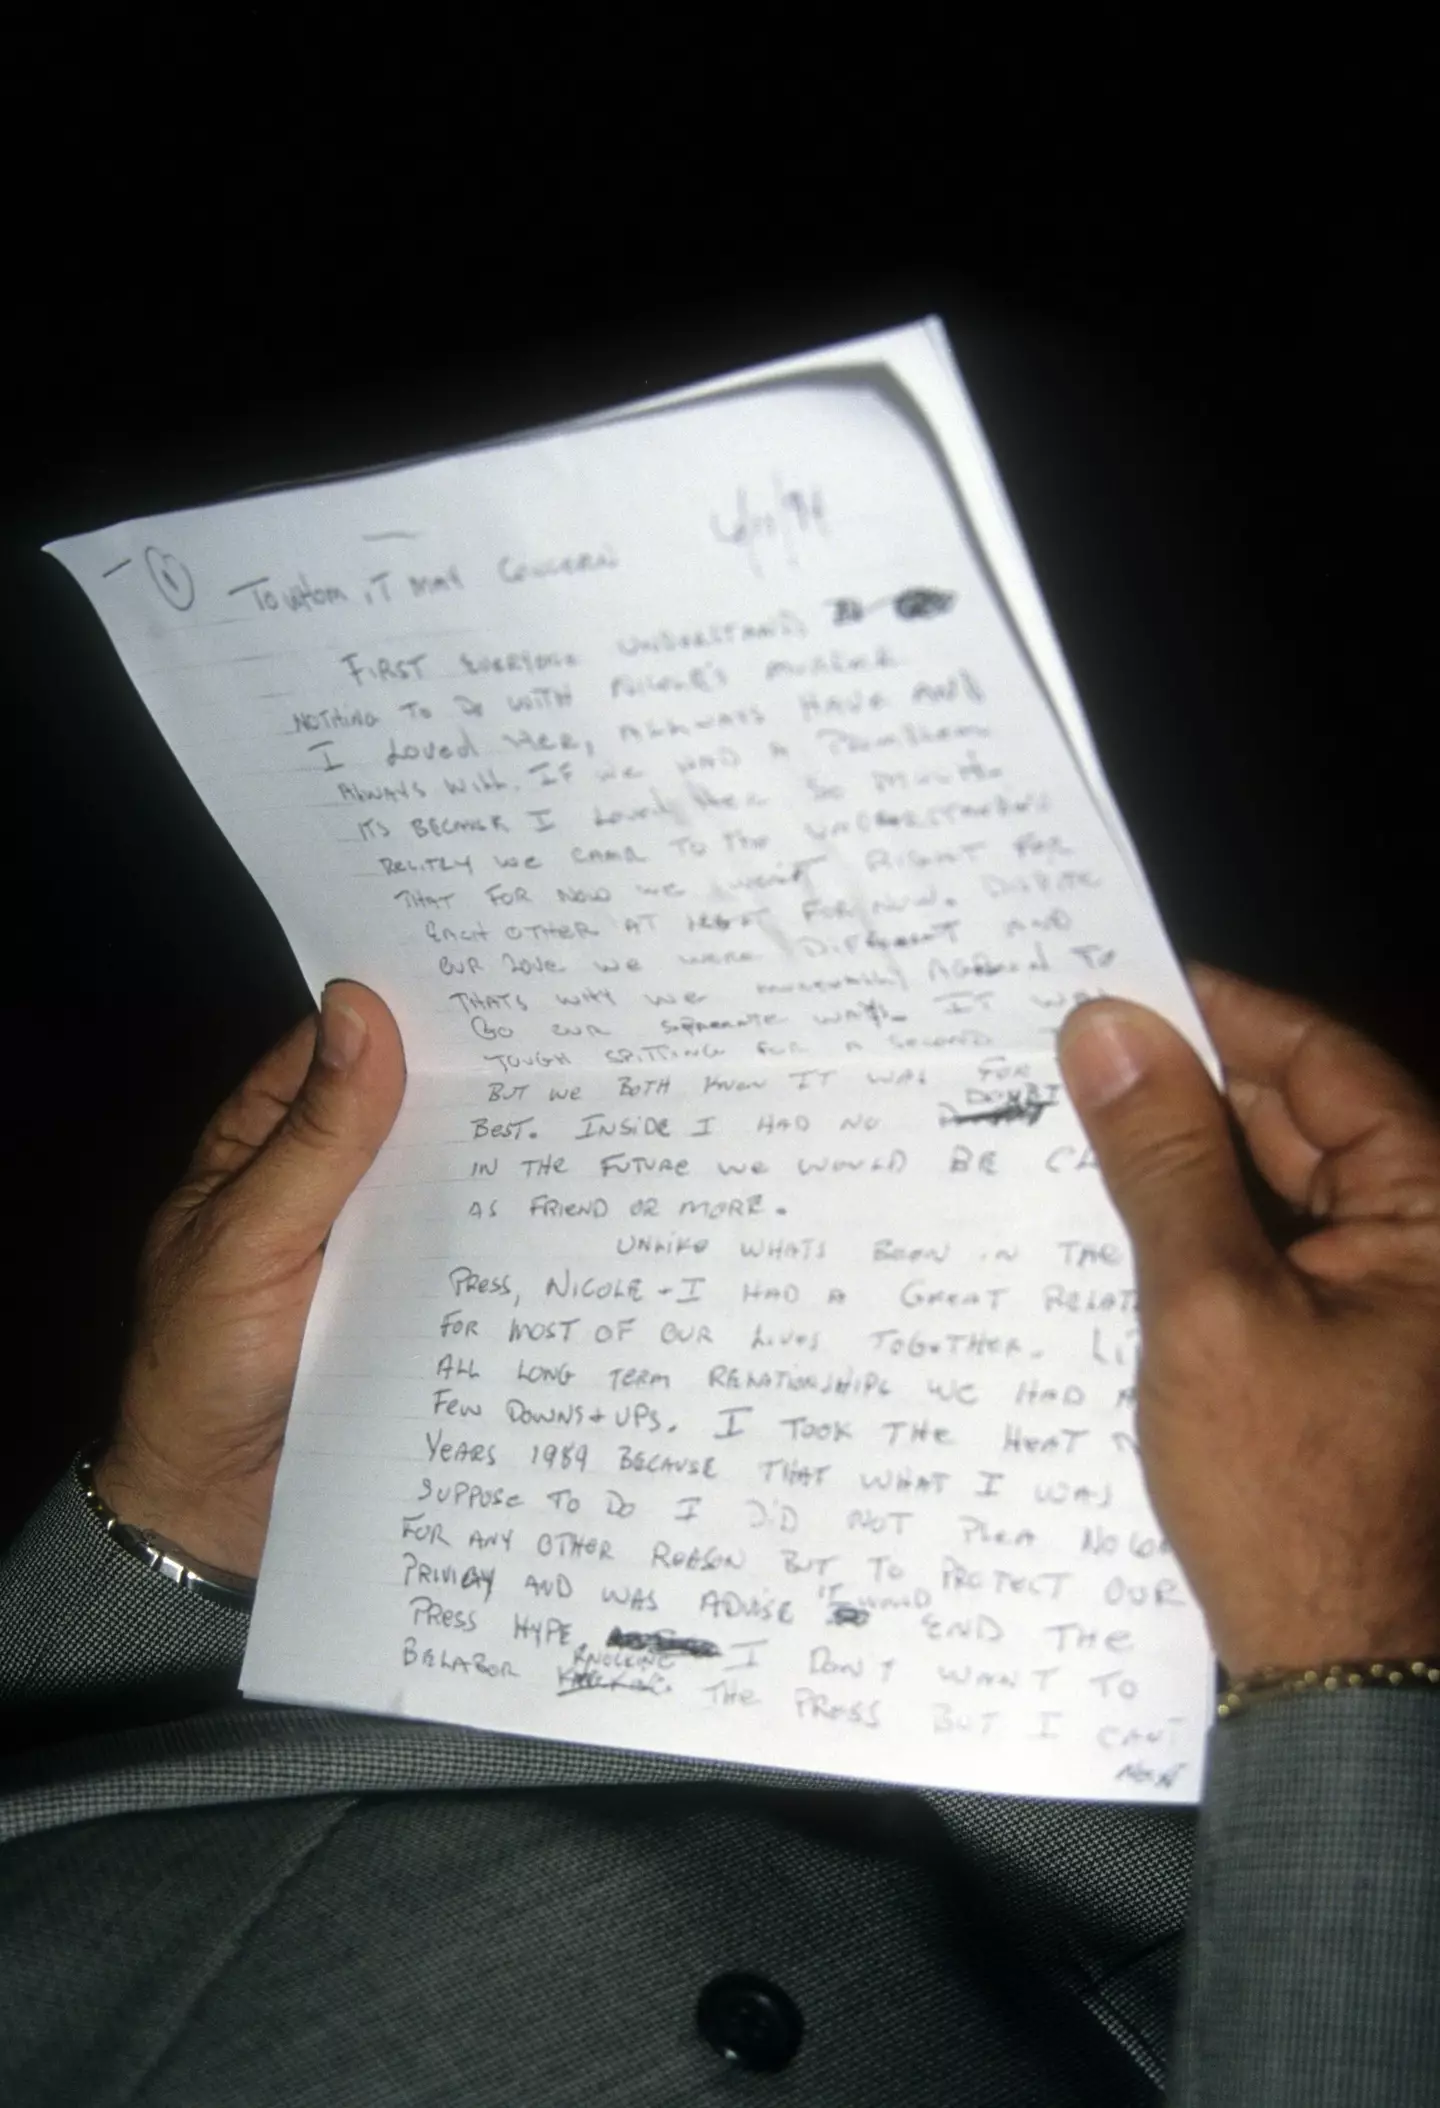 1
To whom it may concern 6/17/94
First everyone understand
nothing to do with Nicole's murder
I loved her, allways have and
always will. If we had a problem
its because I loved her so much.
Recitly we came to the understanding
that for now we wern't right for
each other at least for now. Dispite
our love we were different and
thats why we murtually agreed to
go our separate ways. It was
tough spitting for a second
but we both know it was for
doubt
best. Inside I had no
in the future we would be
as friend or more.
Unlike whats been in the
press, Nicole + I had a great
for most of our lives together.
all long term relationships we had
few downs + ups. I took the heat
years 1989 because that what I was
suppose to do I did not plea
for any other reason but to protect our
privicy and was advise it would end the
press hype. I don't want to
knocking
belabor the press but I cant